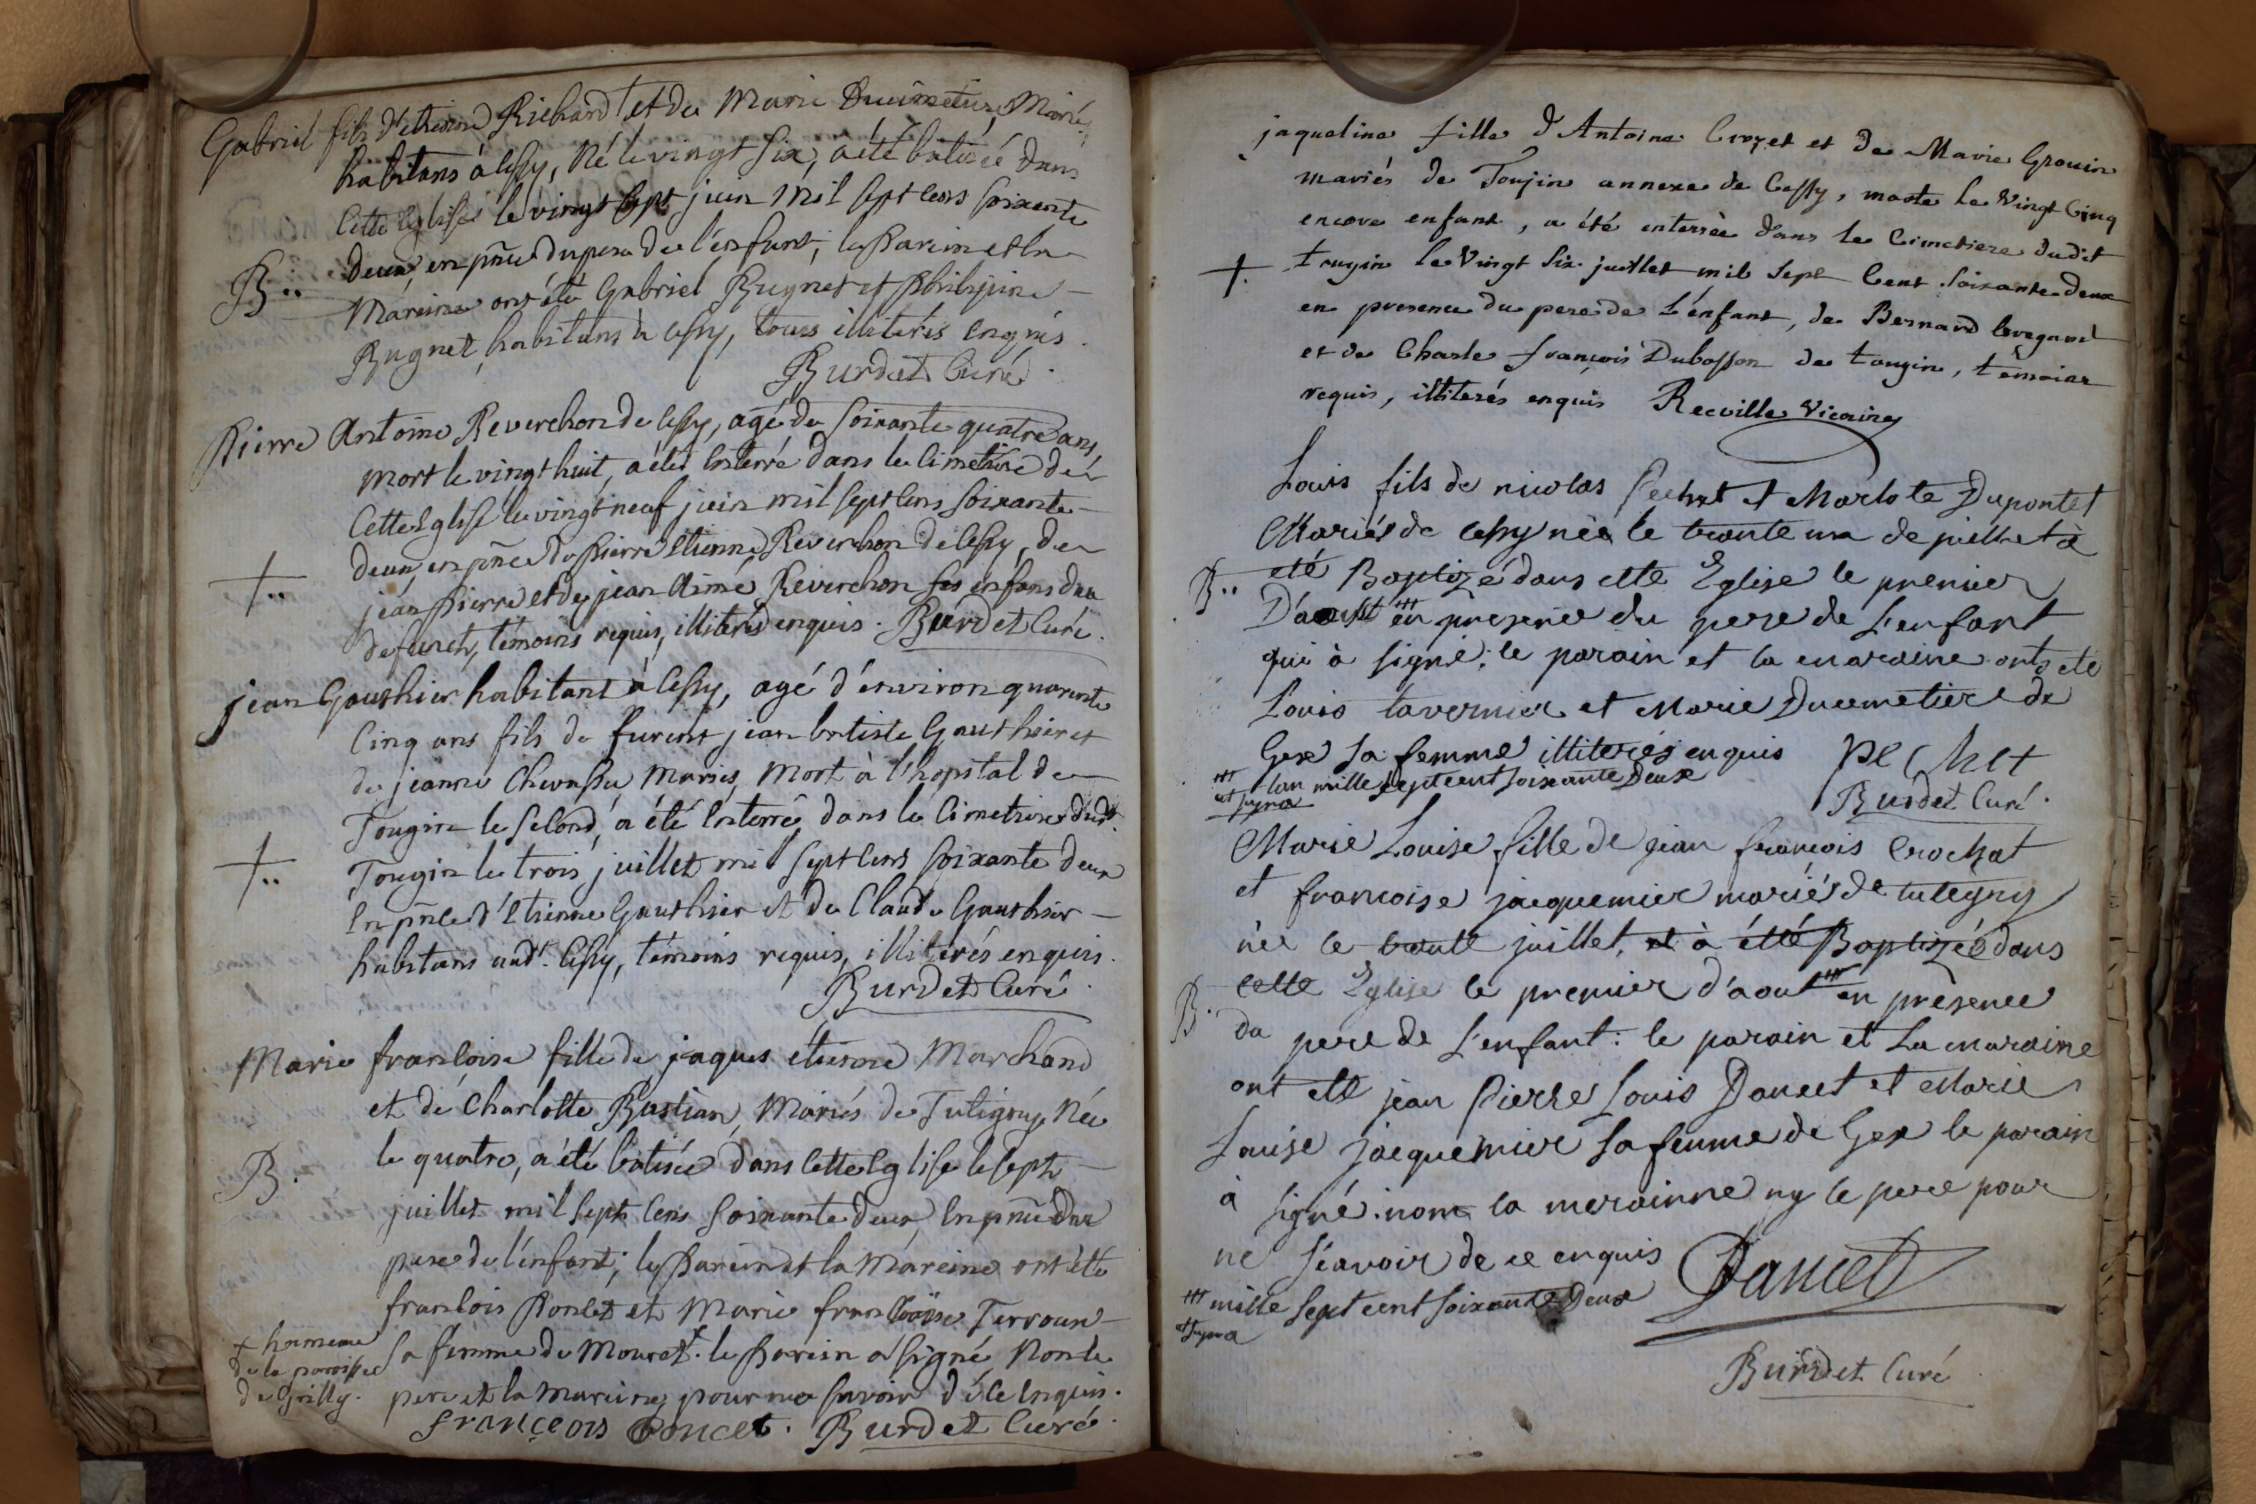 Gabriel fils d'etienne Richard et de Marie Ducimetiere Mariés
habitans à Cessy, Né le vingt six, a été batisé dans
cette Eglise le vingt sept juin mil sept cens soixante
B.. deux, en pñce du pere de l'enfant; le Parein et la
Mareine ont été Gabriel Bugnet et Philipine
Bugnet, habitans à Cessy, tous illiterés enquis.
Burdet Curé.
Pierre Antoine Reverchon de Cessy, agé de soixante quatre ans,
mort le vingt huit, a été enterré dans le Cimetiere de
cette Eglise le vingt neuf juin mil sept cens soixante
deux, en pñce de Pierre Etienne Reverchon de Cessy, de
+.. jean Pierre et de jean Aimé Reverchon ses enfans du
defunct, témoins requis, illiterés enquis. Burdet Curé.
jean Gauthier habitant à Cessy, agé d'environ quarente
cinq ans fils de furent jean batiste Gauthier et
de jeanne Chevassu Mariés, Mort à l'hopital de
Tougin le second, a été enterré dans le Cimetiere dudt.
+.. Tougin le trois juillet mil sept cens soixante deux
en pñce d'Etienne Gauthier et de Claude Gauthier
habitans aud.t Cessy, témoins requis, illiterés enquis.
Burdet Curé.
Marie françoise fille de jaques étienne Marchand
et de Charlotte Bastian, Mariés de Tutigny, Née
le quatre, a été batisée dans cette Eglise le sept
B. juillet mil sept cens soixante deux, en pñce du
pere de l'enfant; le Parein et la Mareine ont été
françois Poncet et Marie françoise Terroux
sa femme de Mouret +. le Parein a signé Non le
+ hameau
de la paroisse
de Grilly.
pere et la Mareine pour ne savoir d'éce enquis.
françois Poncet. Burdet Curé.
jaqueline fille d'Antoine Crozet et de Marie Grouin
mariés de Toujin annexe de Cessy, morte le Vingt Cinq
encore enfant, a été enterrée dans le Cimetiere dudit
+. tougin le Vingt Six juillet mil Sept Cent Soixante deux
en presence du pere de L'enfant, de Bernard levegond
et de Charle françois Dubosson de tougin, témoins
requis, illiterés enquis Recville Vicaire
Louis fils de nicolas Pechet et Marlote Dupontet
Mariés de Cessy née le trante un de juillet à
B.. eté Baptizé dans cette Eglise le premier
D'aoust ttt en presence du pere de L'enfant
qui à signé; le parain et la maraine onts eté
Louis tavernier et Marie Ducimetiere de
Gex sa femme illiterés enquis Pe Chet
ttt l'an mille sept cent soixante deux
Burdet Curé.
Marie Louise fille de jean francois Crochat
et francoise jacquemier mariés de tutegny
née le trente juillet, et à étté Baptizée dans
B. cette Eglise le premier d'aout ttt en presence
du pere de L'enfant: le parain et La maraine
ont eté jean Pierre Louis Dancet et Marie
Louise jacquemier sa femme de Gex le parain
à signé. nom la merainne ny le pere pour
ne séavoir de ce enquis Dancet
ttt mille sept cent soixante Deux
Burdet Curé